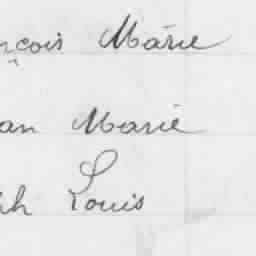 nçois Marie
an Marie
ph Louis